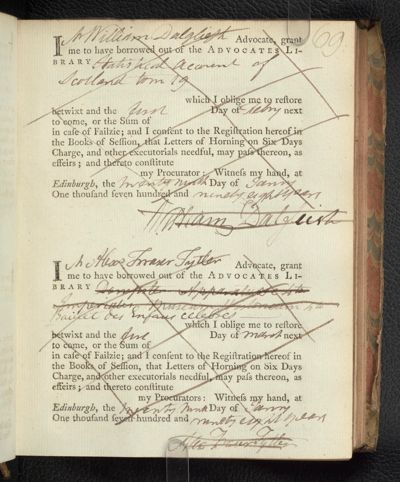 69
I Mr William Dalgliesh Advocate, grant
me to have borrowed out of the ADVOCATES LI-
BRARY Statistical account of
Scotland tom 19
which I oblige me to reſtore
betwixt and the Day of next
to come, or the Sum of
in caſe of Failzie; and I conſent to the Regiſtration hereof in
the Books of Seſſion, that Letters of Horning on Six Days
Charge, and other executorials needful, may paſs thereon, as
effeirs; and thereto conſtitute
my Procurator: Witneſs my hand, at
Edinburgh, the twenty ninth Day of Janry
One thouſand ſeven hundred and ninety eight years
William Dalgliesh
I Mr Alexr Fraser Tytler Advocate, grant
me to have borrowed out of the ADVOCATES LI-
BRARY
des Enfans célèbres
which I oblige me to reſtore
betwixt and the Day of March next
to come, or the Sum of
in caſe of Failzie; and I conſent to the Regiſtration hereof in
the Books of Seſſion, that Letters of Horning on Six Days
Charge, and other executorials needful, may paſs thereon, as
effeirs; and thereto conſtitute
my Procurators: Witneſs my hand, at
Edinburgh, the twenty ninth Day of Janry
One thouſand ſeven hundred and ninety eight years
Alexr Fraser Tytler